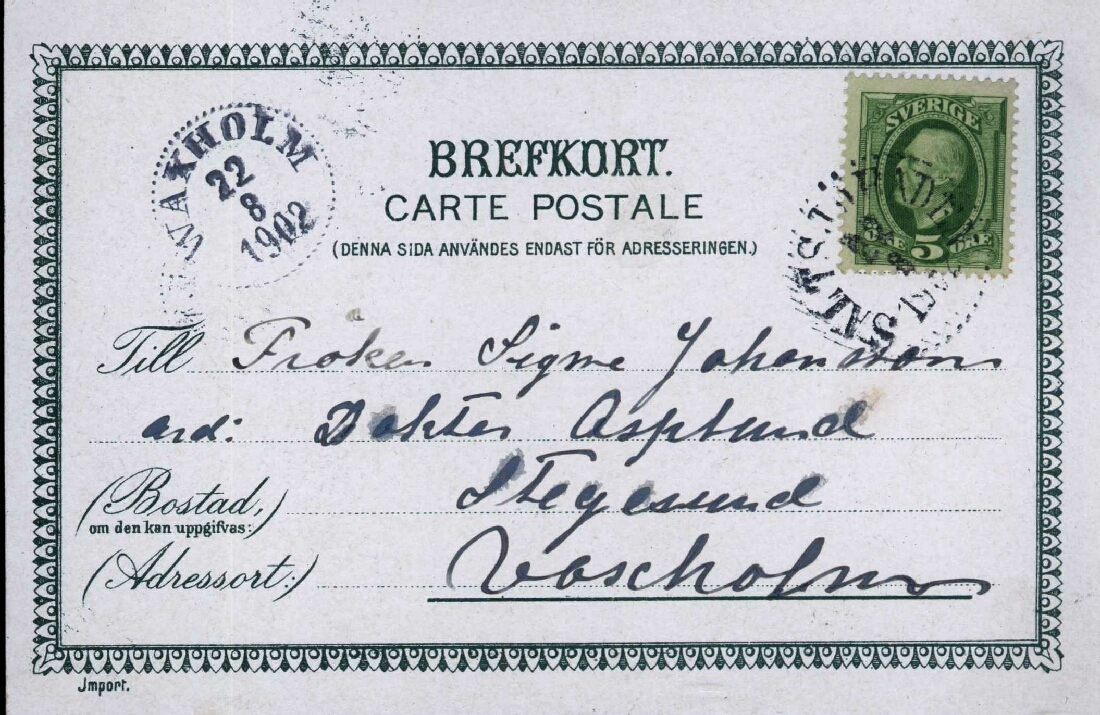 WAXHOLM
22
8
1902
BREFKORT.
CARTE POSTALE
(DENNA SIDA ANVÄNDES ENDAST FÖR ADRESSERINGEN.)
SVERIGE
5 ÖRE
SALTSJÖBADEN
Till Fröken Signe Johansson
ard: Doktor Asplund
(Bostad,
om den kan uppgifvas:)
Stegesund
(Adressort:)
Vaxholm
Jmport.